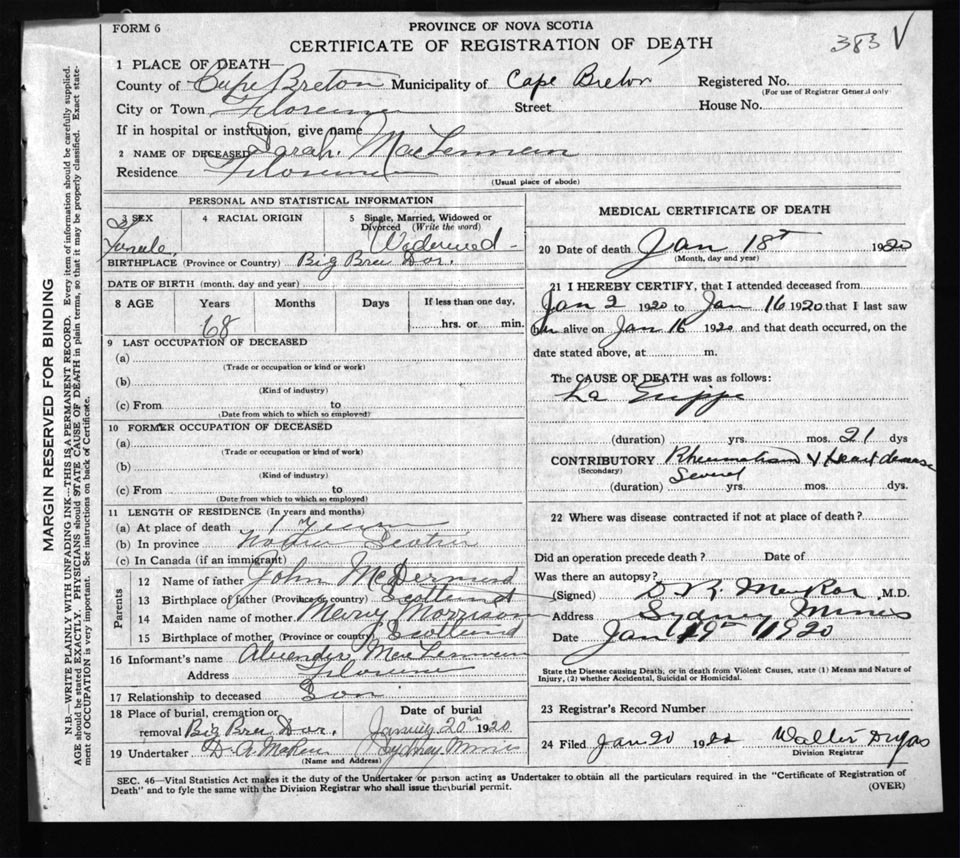 FORM 6
PROVINCE OF NOVA SCOTIA
CERTIFICATE OF REGISTRATION OF DEATH
383 V
1 PLACE OF DEATH—
County of Cape Breton Municipality of Cape Breton Registered No.
(For use of Registrar General only
City or Town Florence Street House No.
If in hospital or institution, give name
2 NAME OF DECEASED Sarah. MacLennan
Residence Florence
(Usual place of abode)
PERSONAL AND STATISTICAL INFORMATION
3 SEX 4 RACIAL ORIGIN 5 Single, Married, Widowed or Divorced (Write the word)
Female Widowed
BIRTHPLACE (Province or Country) Big Bras Dor.
DATE OF BIRTH (month, day and year)
8 AGE Years Months Days If less than one day,
68 hrs. or min.
9 LAST OCCUPATION OF DECEASED
(a)
(Trade or occupation or kind or work)
(b)
(Kind of industry)
(c) From to
(Date from which to which so employed)
10 FORMER OCCUPATION OF DECEASED
(a)
(Trade or occupation or kind of work)
(b)
(Kind of industry)
(c) From to
(Date from which to which so employed)
11 LENGTH OF RESIDENCE (In years and months)
(a) At place of death
(b) In province Scotia
(c) In Canada (if an immigrant)
Parents
12 Name of father John McDermid
13 Birthplace of father (Province or country) Scotland
14 Maiden name of mother Mary Morrison
15 Birthplace of mother (Province or country) Scotland
16 Informant's name Alexander MacLennan
Address Florence
17 Relationship to deceased Son
18 Place of burial, cremation or removal Big Bras Dor. Date of burial January 20th 1920
19 Undertaker D. A. Sydney Mines
(Name and Address)
MEDICAL CERTIFICATE OF DEATH
20 Date of death Jan 18th 1920
(Month, day and year)
21 I HEREBY CERTIFY, that I attended deceased from
Jan 2 1920 to Jan 16 1920 that I last saw
her alive on Jan 16 1920 and that death occurred, on the
date stated above, at m.
The CAUSE OF DEATH was as follows:
La Grippe
(duration) yrs. mos. 21 dys
CONTRIBUTORY Rheumatism & Heart disease
(Secondary)
(duration) Several yrs. mos. dys.
22 Where was disease contracted if not at place of death?
Did an operation precede death? Date of
Was there an autopsy?
(Signed) D. R. M.D.
Address Sydney Mines
Date Jan 19th 1920
State the Disease causing Death, or in death from Violent Causes, state (1) Means and Nature of
Injury, (2) whether Accidental, Suicidal or Homicidal.
23 Registrar's Record Number
24 Filed Jan 20 1920 Walter Dugas
Division Registrar
SEC. 46—Vital Statistics Act makes it the duty of the Undertaker or person acting as Undertaker to obtain all the particulars required in the "Certificate of Registration of
Death" and to fyle the same with the Division Registrar who shall issue the burial permit.
(OVER)
MARGIN RESERVED FOR BINDING
N.B.—WRITE PLAINLY WITH UNFADING INK—THIS IS A PERMANENT RECORD. Every item of information should be carefully supplied.
AGE should be stated EXACTLY. PHYSICIANS should STATE CAUSE OF DEATH in plain terms, so that it may be properly classified. Exact state-
ment of OCCUPATION is very important. See instructions on back of Certificate.